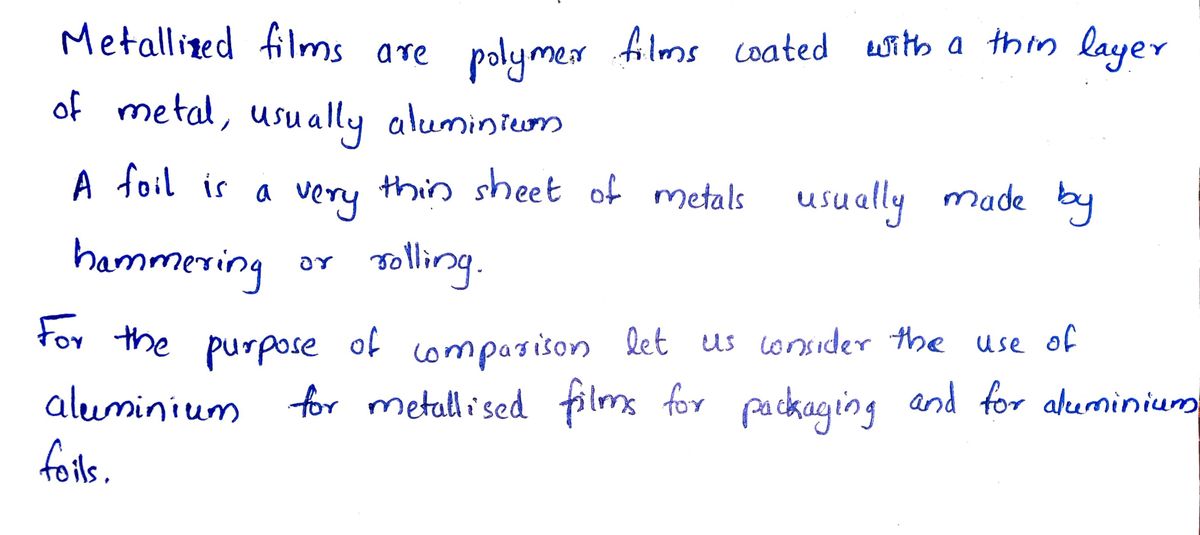 Metallized films are polymer films coated with a thin layer
of metal, usually aluminium
A foil is a very thin sheet of metals usually made by
hammering or rolling.
For the purpose of comparison let us consider the use of
aluminium for metallised films for packaging and for aluminium
foils.